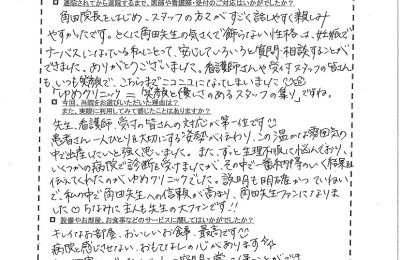 ■ 通院されてから退院するまで、医師や看護師・受付のご対応はいかがでしたか?
角田院長をはじめ、スタッフの方々がすごく話しやすく親しみ
やすかったです。とくに角田先生の気さくで飾らない性格は、妊娠で
ナーバスになっている私にとって、安心していろいろと質問・相談することが
できました。ありがとうございました。看護師さんや受付スタッフの皆さん
も、いつも笑顔で、こちらまでニコニコになってしまいました
「ゆめクリニック = 笑顔と優しさのあるスタッフの集り」ですね。
■ 今回、当院をお選びいただいた理由は?
また、実際に利用してみて感じたことはありますか?
先生、看護師、受付の皆さんの対応が第一位です♡
患者さん一人ひとりを大切にする姿勢が伝わり、この温かな雰囲気の
中で出産したいと強く思いました。また、ずっと生理不順に悩んでおり、
いくつかの病院で診断を受けましたが、その中で一番納得のいく結果を
伝えてくれたのがゆめクリニックでした。説明も明確かつていねい
で、私の中で角田先生への信頼が高まり、角田先生ファンになりま
した♡ちなみに主人も先生の大ファンです!!
■ 設備やお部屋、お食事などのサービスに関してはいかがでしたか?
キレイなお部屋、おいしいお食事、最高です
病院と感じさせない、おもてなしの心があります